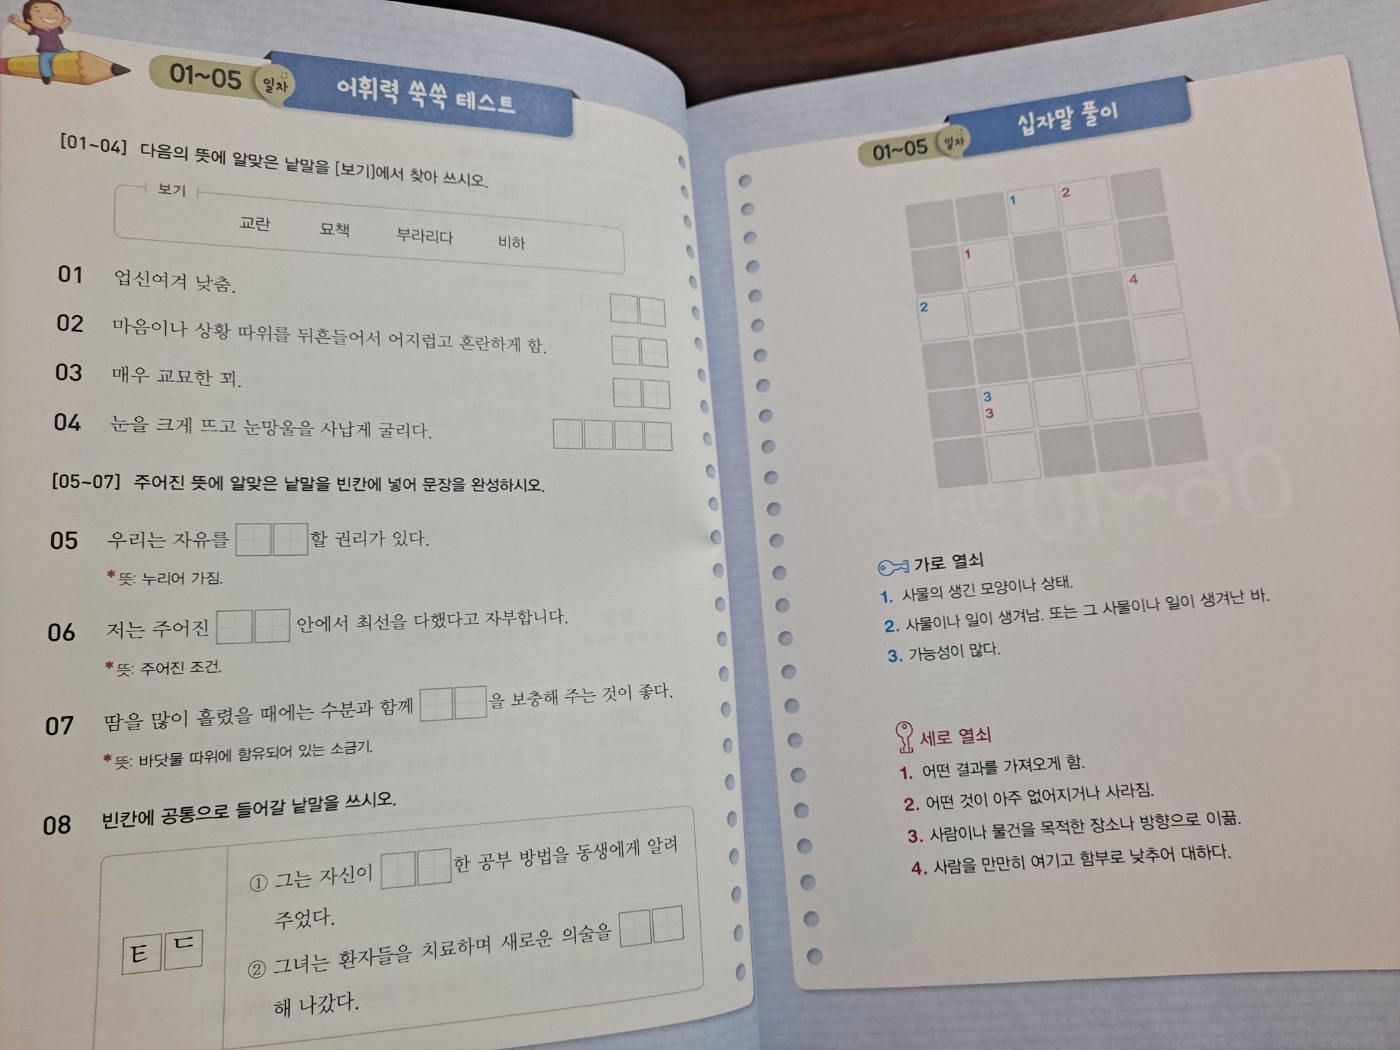 01~05 일차 어휘력 쑥쑥 테스트
[01~04] 다음의 뜻에 알맞은 낱말을 [보기]에서 찾아 쓰시오.
보기
교란 묘책 부라리다 비하
01 업신여겨 낮춤.
02 마음이나 상황 따위를 뒤흔들어서 어지럽고 혼란하게 함.
03 매우 교묘한 꾀.
04 눈을 크게 뜨고 눈망울을 사납게 굴리다.
[05~07] 주어진 뜻에 알맞은 낱말을 빈칸에 넣어 문장을 완성하시오.
05 우리는 자유를 할 권리가 있다.
*뜻: 누리어 가짐.
06 저는 주어진 안에서 최선을 다했다고 자부합니다.
*뜻: 주어진 조건.
07 땀을 많이 흘렸을 때에는 수분과 함께 을 보충해 주는 것이 좋다.
*뜻: 바닷물 따위에 함유되어 있는 소금기.
08 빈칸에 공통으로 들어갈 낱말을 쓰시오.
ㅌ ㄷ
① 그는 자신이 한 공부 방법을 동생에게 알려
주었다.
② 그녀는 환자들을 치료하며 새로운 의술을
해 나갔다.
01~05 일차 십자말 풀이
1 2
1
2 4
3
3
가로 열쇠
1. 사물의 생긴 모양이나 상태.
2. 사물이나 일이 생겨남. 또는 그 사물이나 일이 생겨난 바.
3. 가능성이 많다.
세로 열쇠
1. 어떤 결과를 가져오게 함.
2. 어떤 것이 아주 없어지거나 사라짐.
3. 사람이나 물건을 목적한 장소나 방향으로 이끎.
4. 사람을 만만히 여기고 함부로 낮추어 대하다.